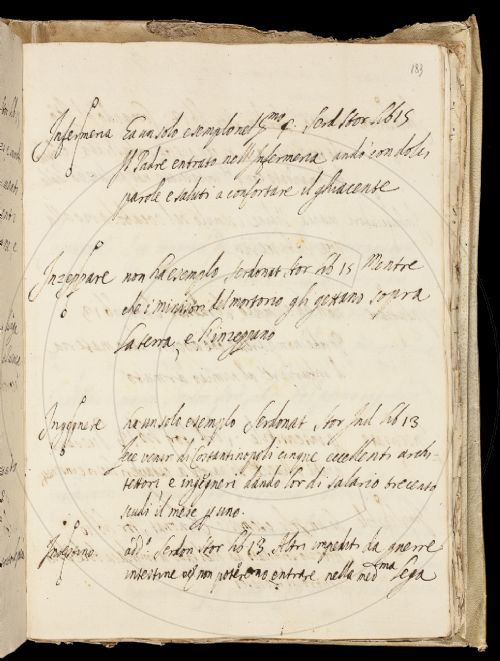 183
Infermeria ha un solo esemplo nel 5.mo e Serd. Stor lib 15
Il Padre entrato nell'Infermeria andò con dolci
parole e saluti a confortare il ghiacente
Inzeppare non ha esemplo Serdonat. Stor lib 15 Mentre
che i ministri del mortorio gli gettano sopra
la terra, e l'inzeppano
Ingegnere ha un solo esemplo Serdonat Stor Ind lib 13
fece venir di Costantinopoli cinque eccellenti archi-
tettori e ingegneri dando lor di salario trecento
scudi il mese per uno.
Intestino. add.o Serdon Stor lib 13 Altri impediti da guerre
intestine non poterono entrare nella med.ma lega